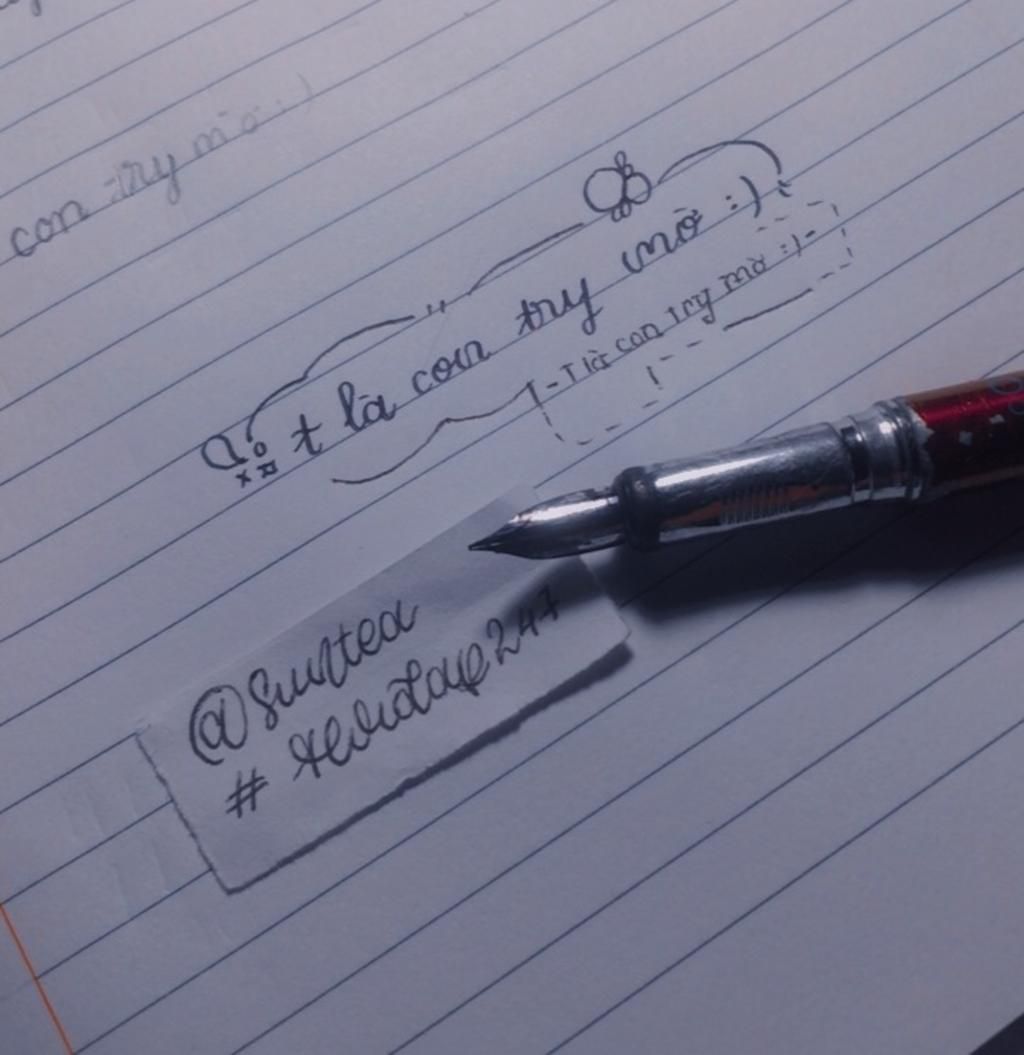 con try mờ :)
t là con try mờ :)
- T là con try mờ :) -
@Suutea
#